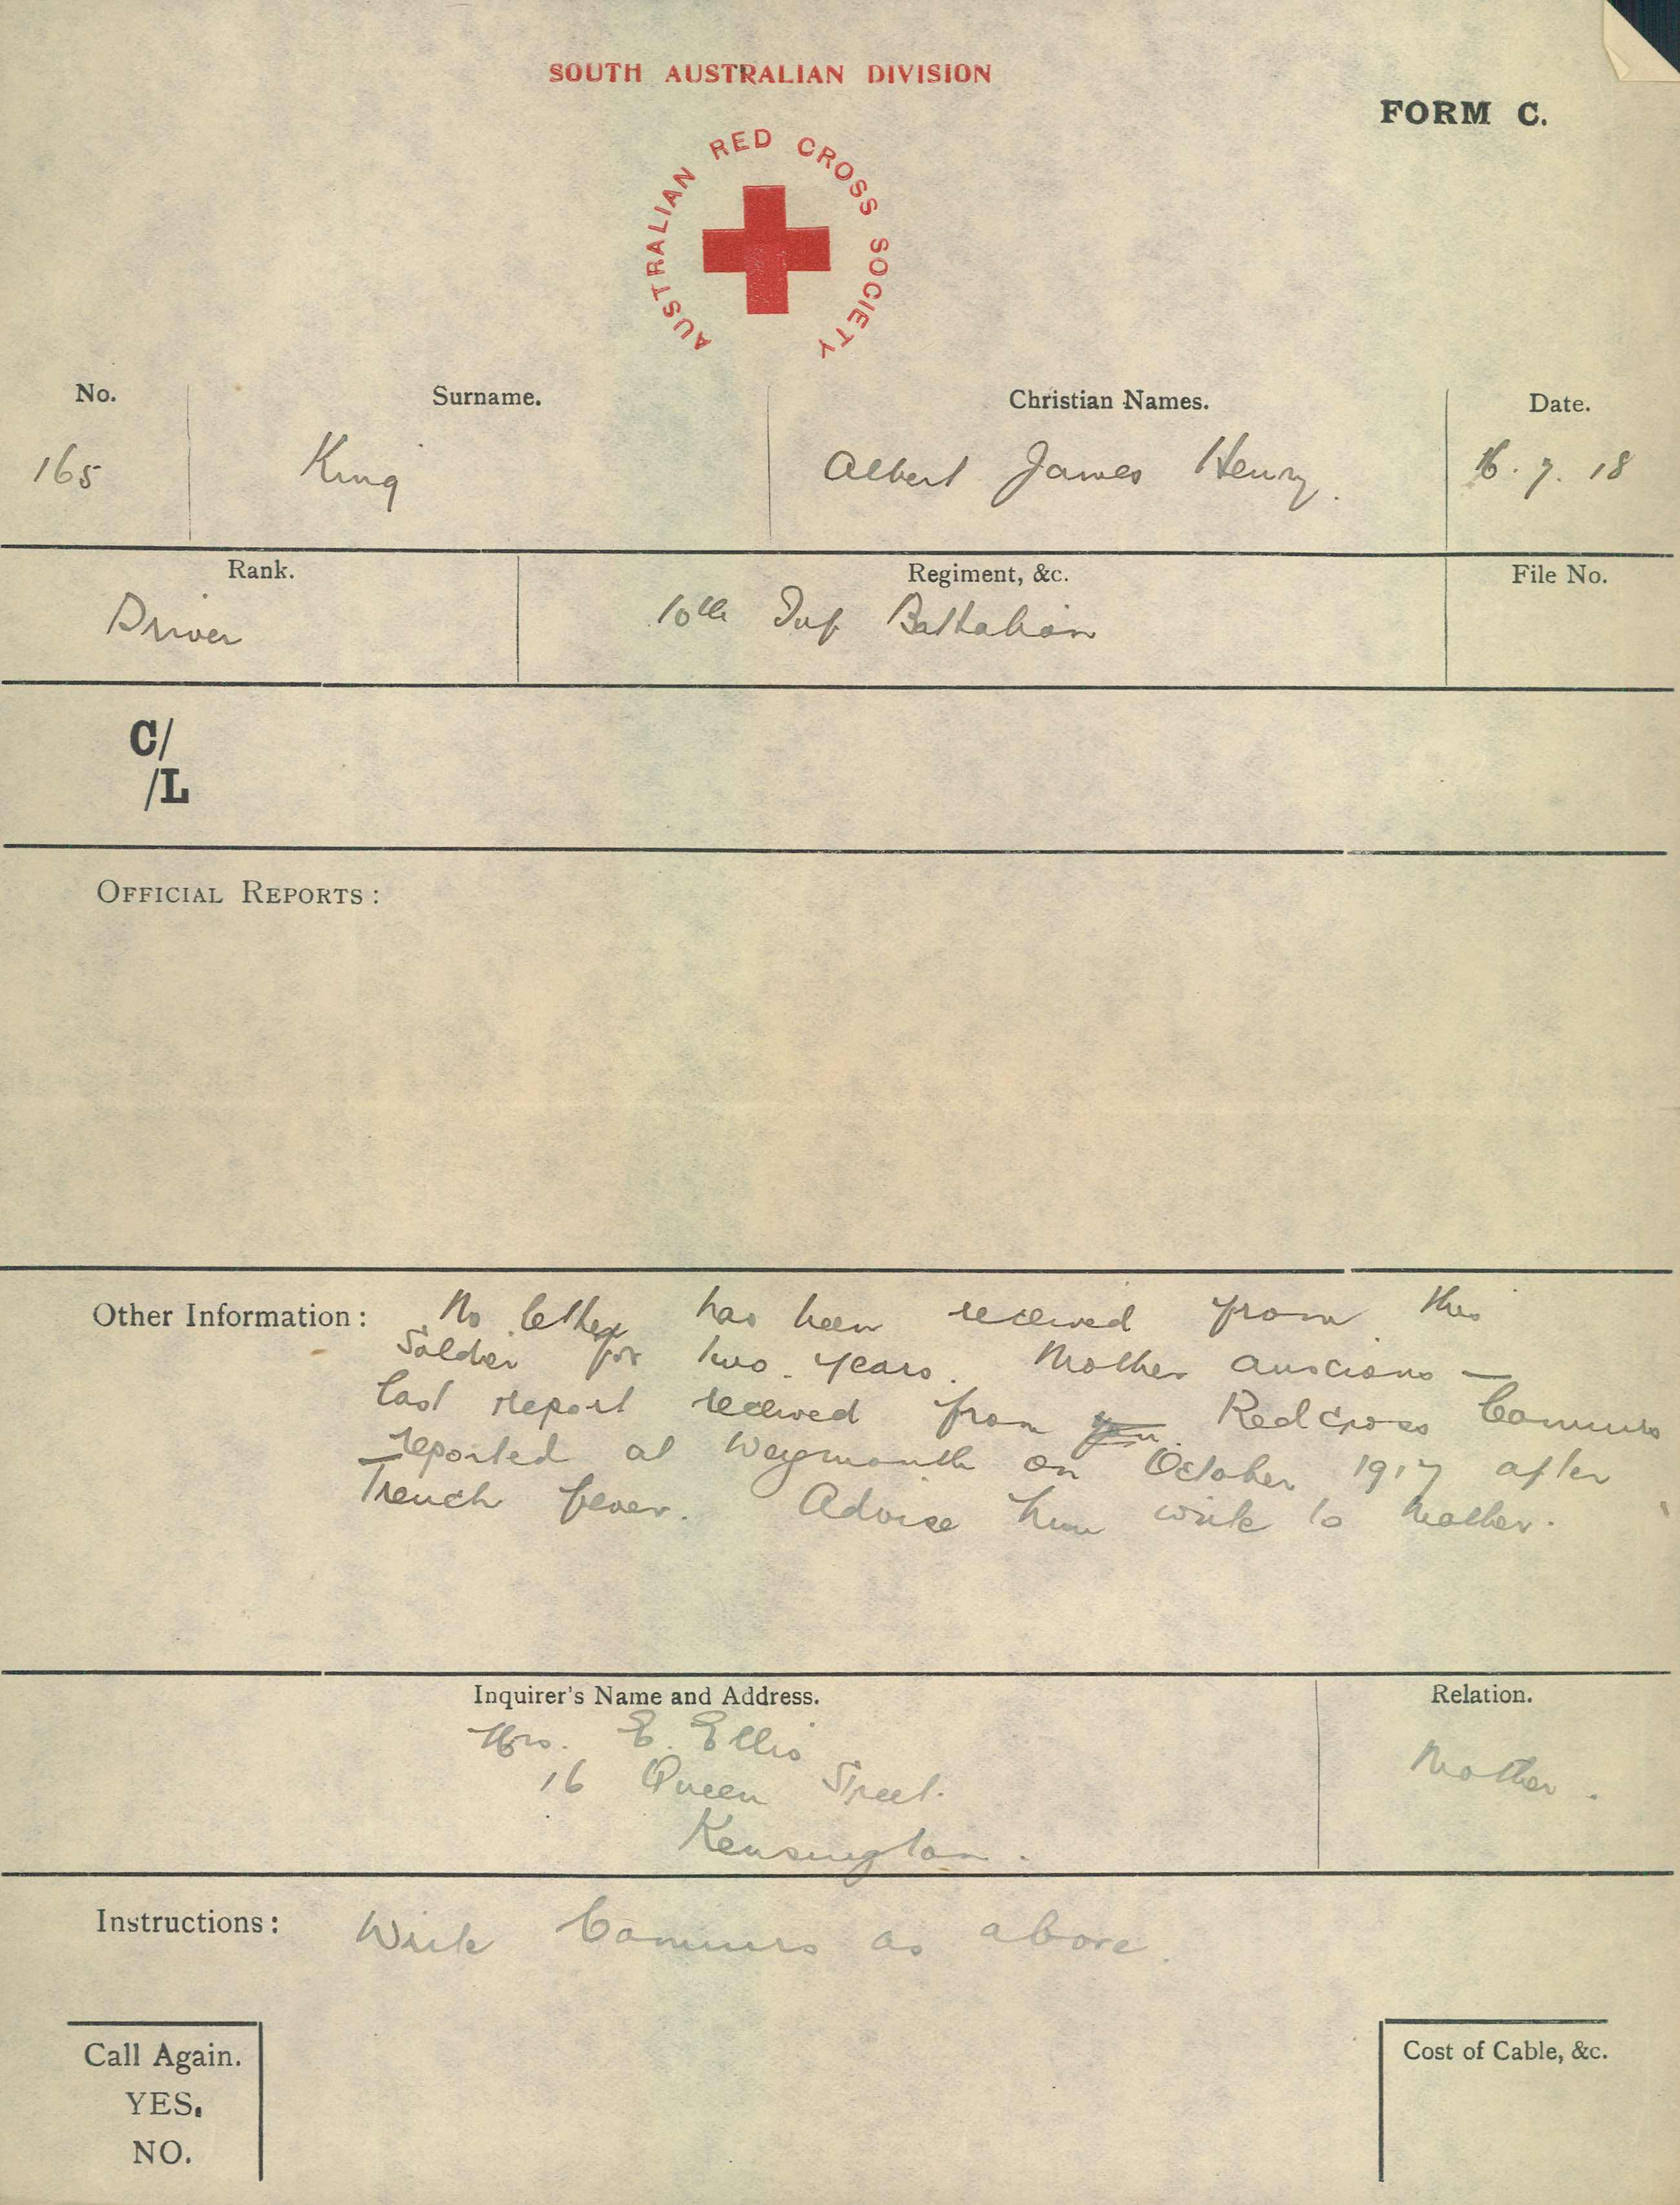 SOUTH AUSTRALIAN DIVISION
FORM C.
AUSTRALIAN RED CROSS SOCIETY
No. Surname. Christian Names. Date.
165 King Albert James Henry. 16. 7. 18
Rank. Regiment, &c. File No.
Driver 10th Inf Battalion
C/
/L
OFFICIAL REPORTS:
Other Information: No letter has been received from this
Soldier for two years. Mother anxious —
last report received from Red Cross Commrs
reported at Weymouth on October 1917 after
Trench fever. Advise him write to Mother.
Inquirer's Name and Address. Relation.
Mrs. E. Ellis
16 Queen Street. Mother.
Kensington.
Instructions: Write Commrs as above.
Call Again. Cost of Cable, &c.
YES.
NO.